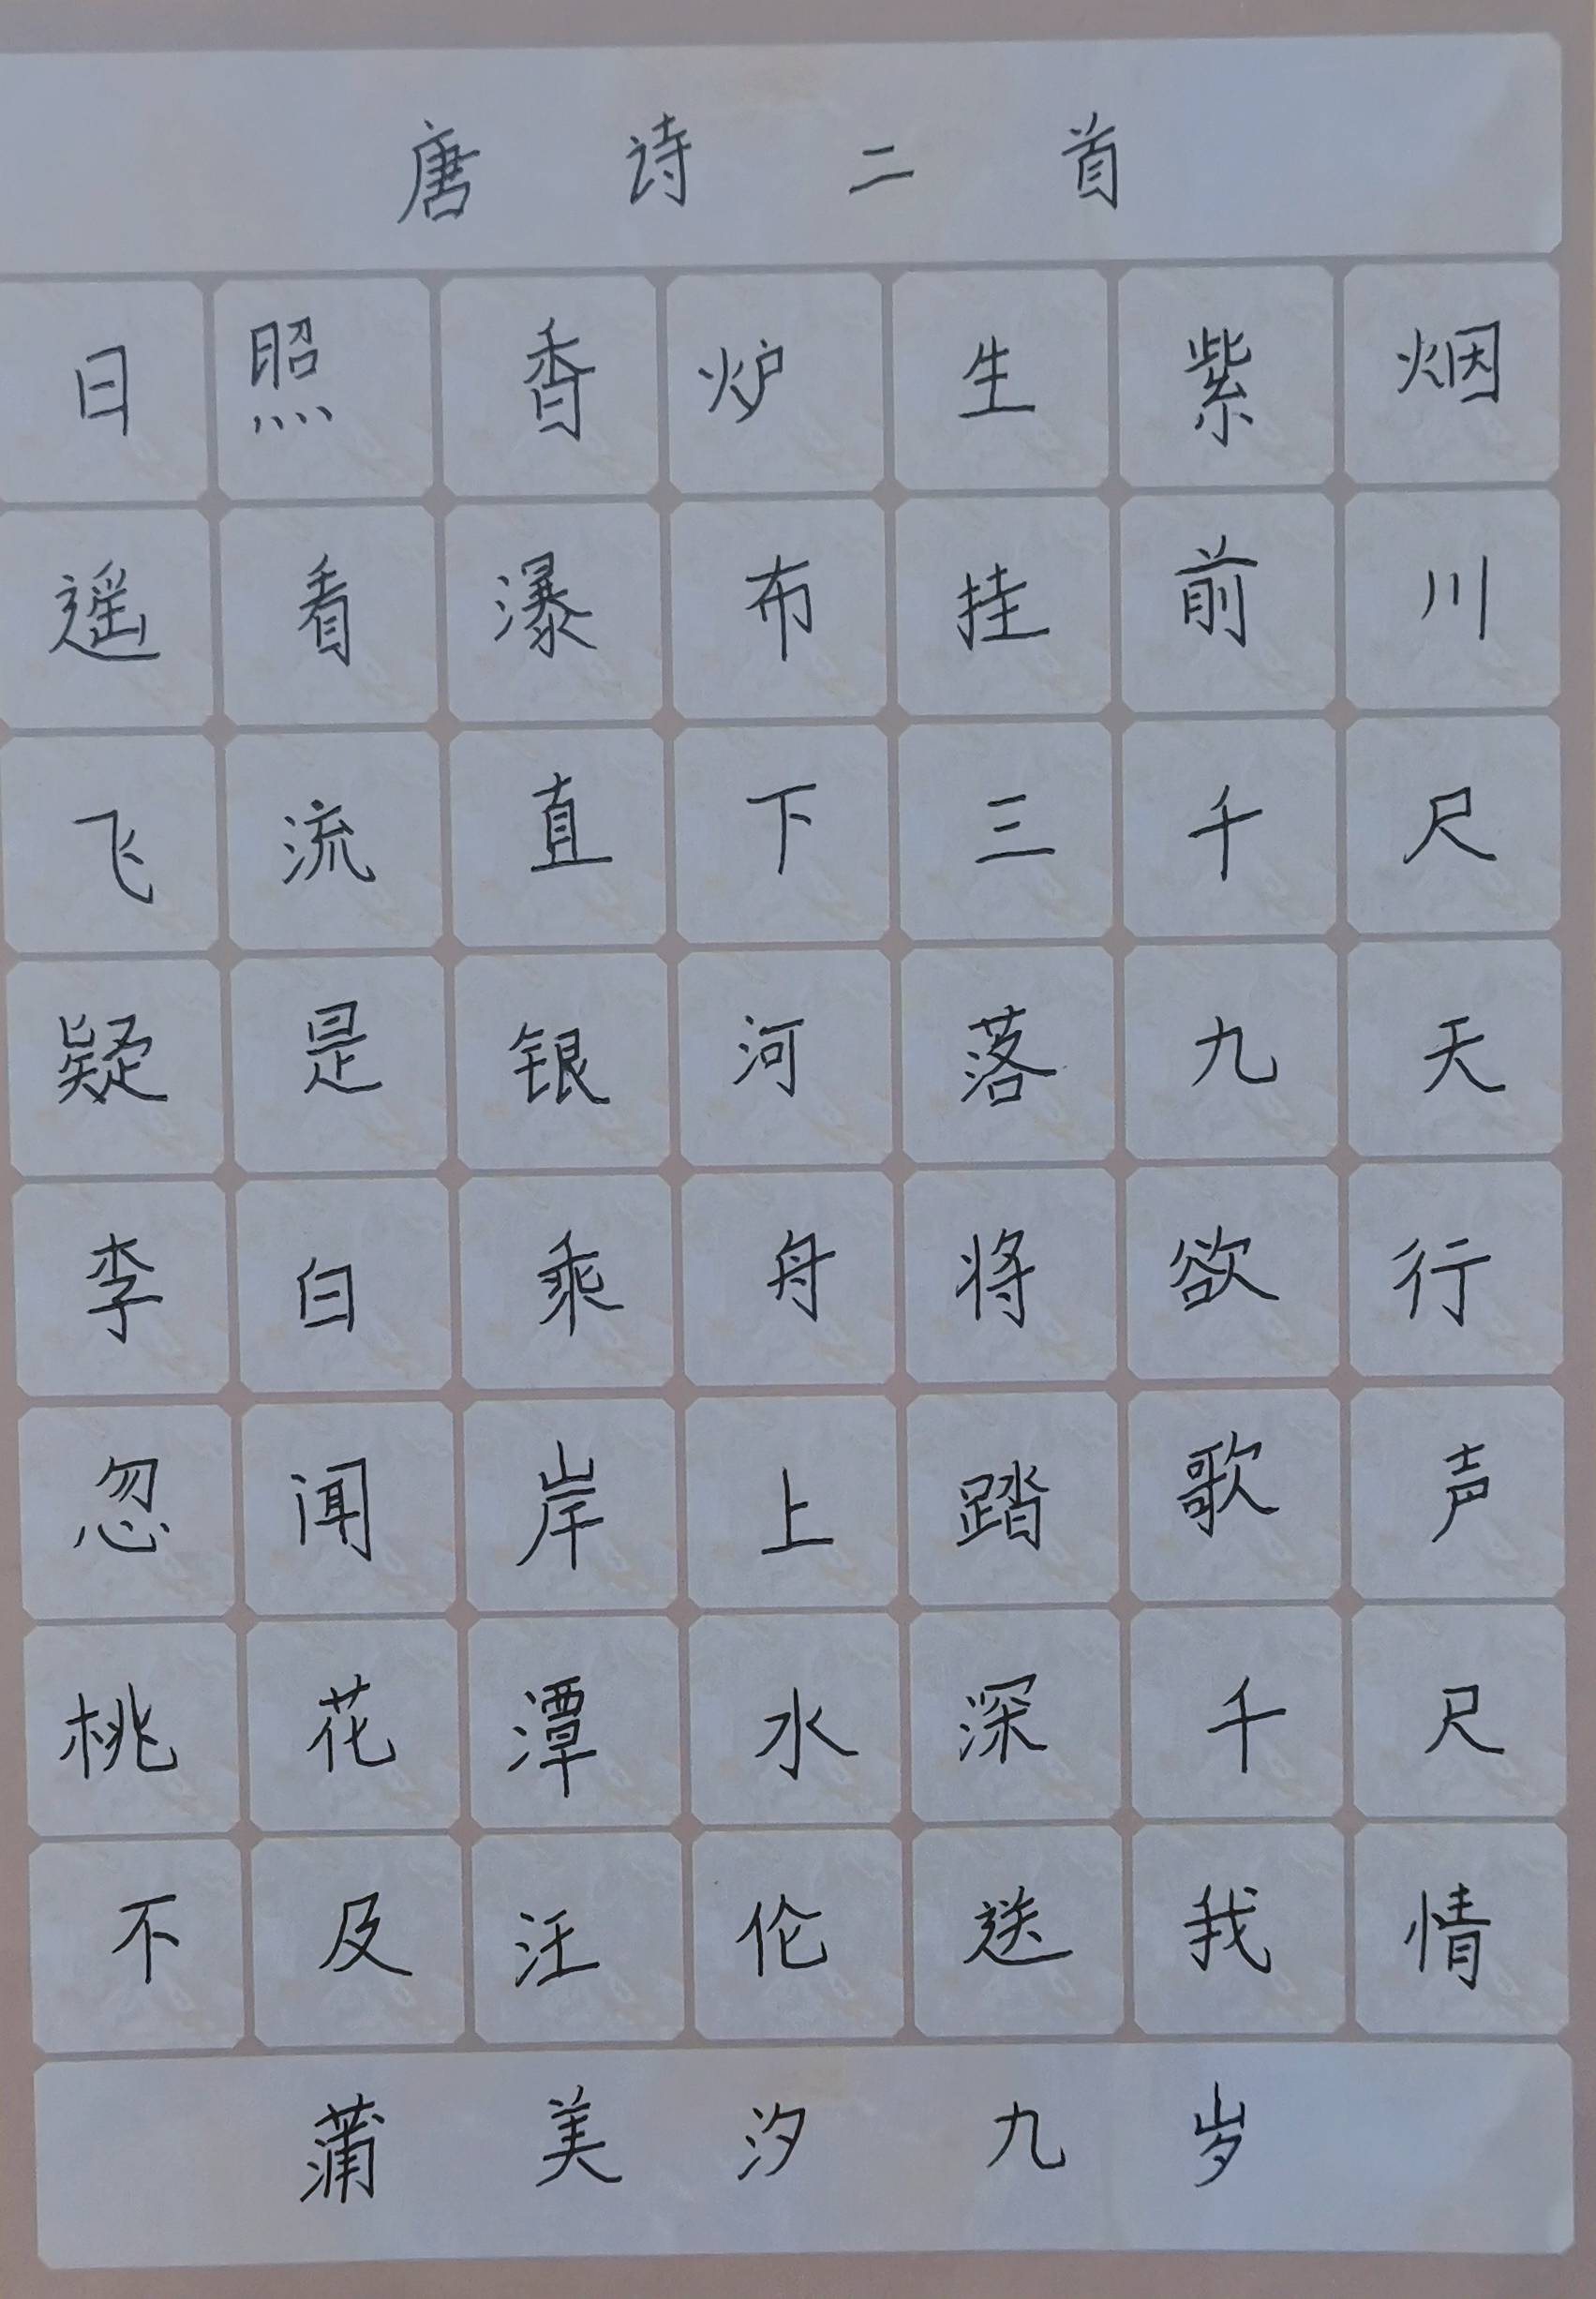 唐诗二首
日照香炉生紫烟
遥看瀑布挂前川
飞流直下三千尺
疑是银河落九天
李白乘舟将欲行
忽闻岸上踏歌声
桃花潭水深千尺
不及汪伦送我情
蒲美汐九岁